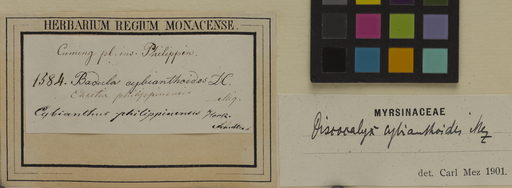 HERBARIUM REGIUM MONACENSE.
Cuming pl. ins. Philippin.
1384. Badula cybianthoides DC
Choripetalum philippinense
Miq.
Cybianthus philippinensis
MYRSINACEAE
Discocalyx cybianthoides Mez
det. Carl Mez 1901.